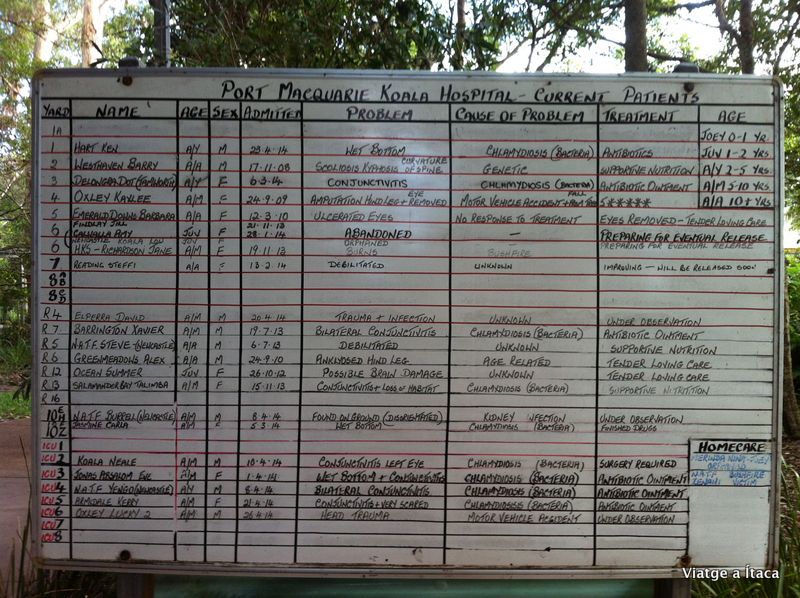 PORT MACQUARIE KOALA HOSPITAL - CURRENT PATIENTS
YARD NAME AGE SEX ADMITTED PROBLEM CAUSE OF PROBLEM TREATMENT AGE
1A JOEY 0-1 YR
1 HART KEN A/Y M 23.4.14 WET BOTTOM CHLAMYDIOSIS (BACTERIA) ANTIBIOTICS JUV 1-2 YRS
2 WESTHAVEN BARRY A/A M 17.11.08 SCOLIOSIS KYPHOSIS CURVATURE OF SPINE GENETIC SUPPORTIVE NUTRITION A/Y 2-5 YRS
3 DELONGRA DOT (TAMWORTH) A/Y F 6.3.14 CONJUNCTIVITIS CHLAMYDIOSIS (BACTERIA) ANTIBIOTIC OINTMENT A/M 5-10 YRS
4 OXLEY KAYLEE A/M F 24.9.09 AMPUTATION HIND LEG + EYE REMOVED MOTOR VEHICLE ACCIDENT + FALL FROM TREE 5***** A/A 10+ YRS
5 EMERALD DOWNS BARBARA A/A F 12.3.10 ULCERATED EYES NO RESPONSE TO TREATMENT EYES REMOVED - TENDER LOVING CARE
FINDLAY JAL 21.11.13
6 CALWALLA AMY JUV F 28.1.14 ABANDONED - PREPARING FOR EVENTUAL RELEASE
NEWCASTLE KOALA LOU JUV F ORPHANED PREPARING FOR EVENTUAL RELEASE
6 HKS - RICHARDSON JANE A/M F 19.11.13 BURNS BUSHFIRE
7 READING STEFFI A/A F 13.2.14 DEBILITATED UNKNOWN IMPROVING - WILL BE RELEASED SOON
8A
8B
R4 ELPERRA DAVID A/M M 20.4.14 TRAUMA + INFECTION UNKNOWN UNDER OBSERVATION
R.7 BARRINGTON XAVIER A/M M 19.7.13 BILATERAL CONJUNCTIVITIS CHLAMYDIOSIS (BACTERIA) ANTIBIOTIC OINTMENT
R5 N.A.T.F. STEVE (NEWCASTLE) A/A M 6.7.13 DEBILITATED UNKNOWN SUPPORTIVE NUTRITION
R6 GREENMEADOWS ALEX A/A M 24.9.10 ANKYLOSED HIND LEG AGE RELATED TENDER LOVING CARE
R12 OCEAN SUMMER JUV F 26.10.12 POSSIBLE BRAIN DAMAGE UNKNOWN TENDER LOVING CARE
R.13 SALAMANDER BAY TALIMBA A/M F 15.11.13 CONJUNCTIVITIS + LOSS OF HABITAT CHLAMYDIOSIS (BACTERIA) SUPPORTIVE NUTRITITION
R16
10E N.A.T.F. BURREL (NEWCASTLE) A/M M 8.4.14 FOUND ON GROUND (DISORIENTATED) KIDNEY INFECTION UNDER OBSERVATION
10E JASMINE CARLA A/M F 5.3.14 WET BOTTOM CHLAMYDIOSIS (BACTERIA) FINISHED DRUGS
ICU 1 HOMECARE
ICU 2 KOALA NEALE A/M M 10.4.14 CONJUNCTIVITIS LEFT EYE CHLAMYDIOSIS (BACTERIA) SURGERY REQUIRED
ICU 3 JONAS ABSALOM A/M F 1.4.14 WET BOTTOM + CONJUNCTIVITIS CHLAMYDIOSIS (BACTERIA) ANTIBIOTIC OINTMENT
ICU 4 N.A.T.F. YENGO (NEWCASTLE) A/Y M 8.4.14 BILATERAL CONJUNCTIVITIS CHLAMYDIOSIS (BACTERIA) ANTIBIOTIC OINTMENT
ICU 5 ARMIDALE KERRY A/M F 21.4.14 CONJUNCTIVITIS + VERY SCARED CHLAMYDIOSISS (BACTERIA) ANTIBIOTIC OINTMENT
ICU 6 OXLEY LUCKY 2 A/M M 26.4.14 HEAD TRAUMA MOTOR VEHICLE ACCIDENT UNDER OBSERVATION
ICU 7
ICU 8
Viatge a Ítaca